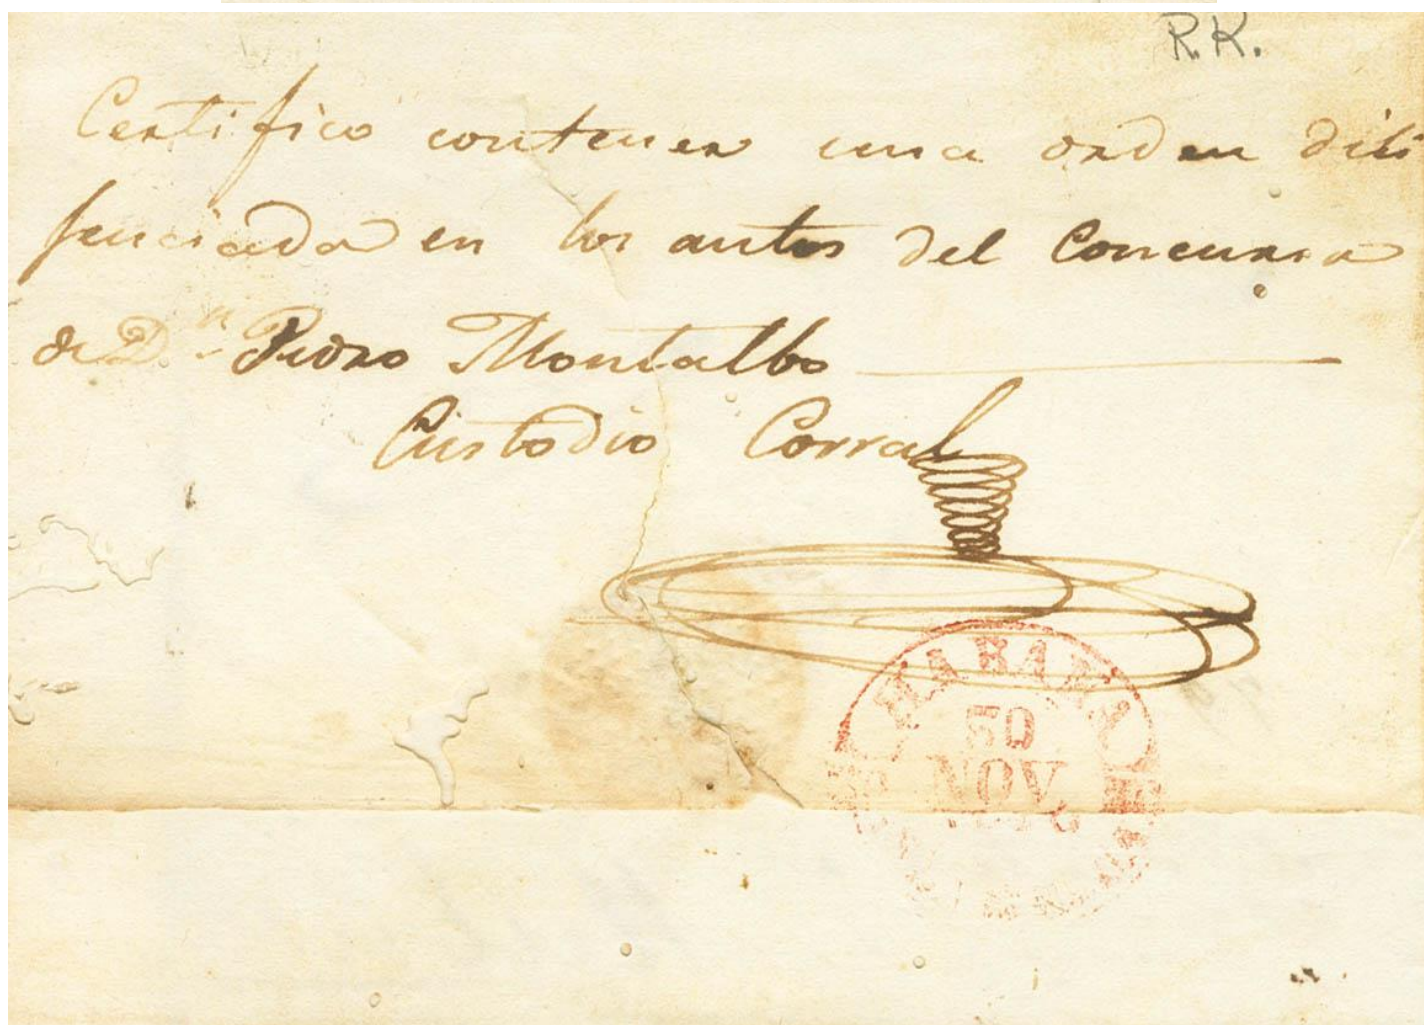 R.K.
Certifico contener una orden dili
fenciada en los autos del Concurso
de D.n Pedro Montalbo
Custodio Corral
HABANA
30
NOV.